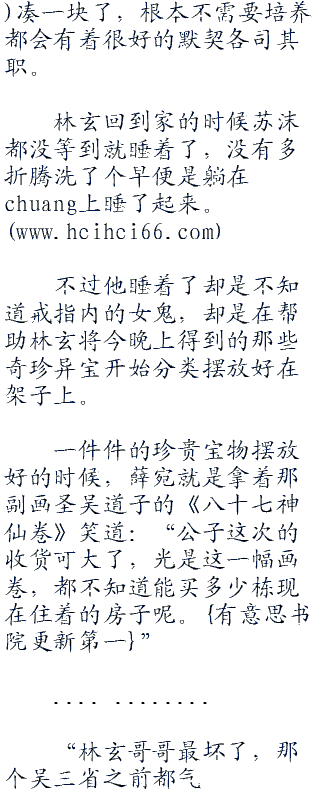 )凑一块了，根本不需要培养
都会有着很好的默契各司其
职。
林玄回到家的时候苏沫
都没等到就睡着了，没有多
折腾洗了个早便是躺在
chuang上睡了起来。
(www.hcihci66.com)
不过他睡着了却是不知
道戒指内的女鬼，却是在帮
助林玄将今晚上得到的那些
奇珍异宝开始分类摆放好在
架子上。
一件件的珍贵宝物摆放
好的时候，薛宛就是拿着那
副画圣吴道子的《八十七神
仙卷》笑道：“公子这次的
收货可大了，光是这一幅画
卷，都不知道能买多少栋现
在住着的房子呢。{有意思书
院更新第一}”
.... ........
“林玄哥哥最坏了，那
个吴三省之前都气